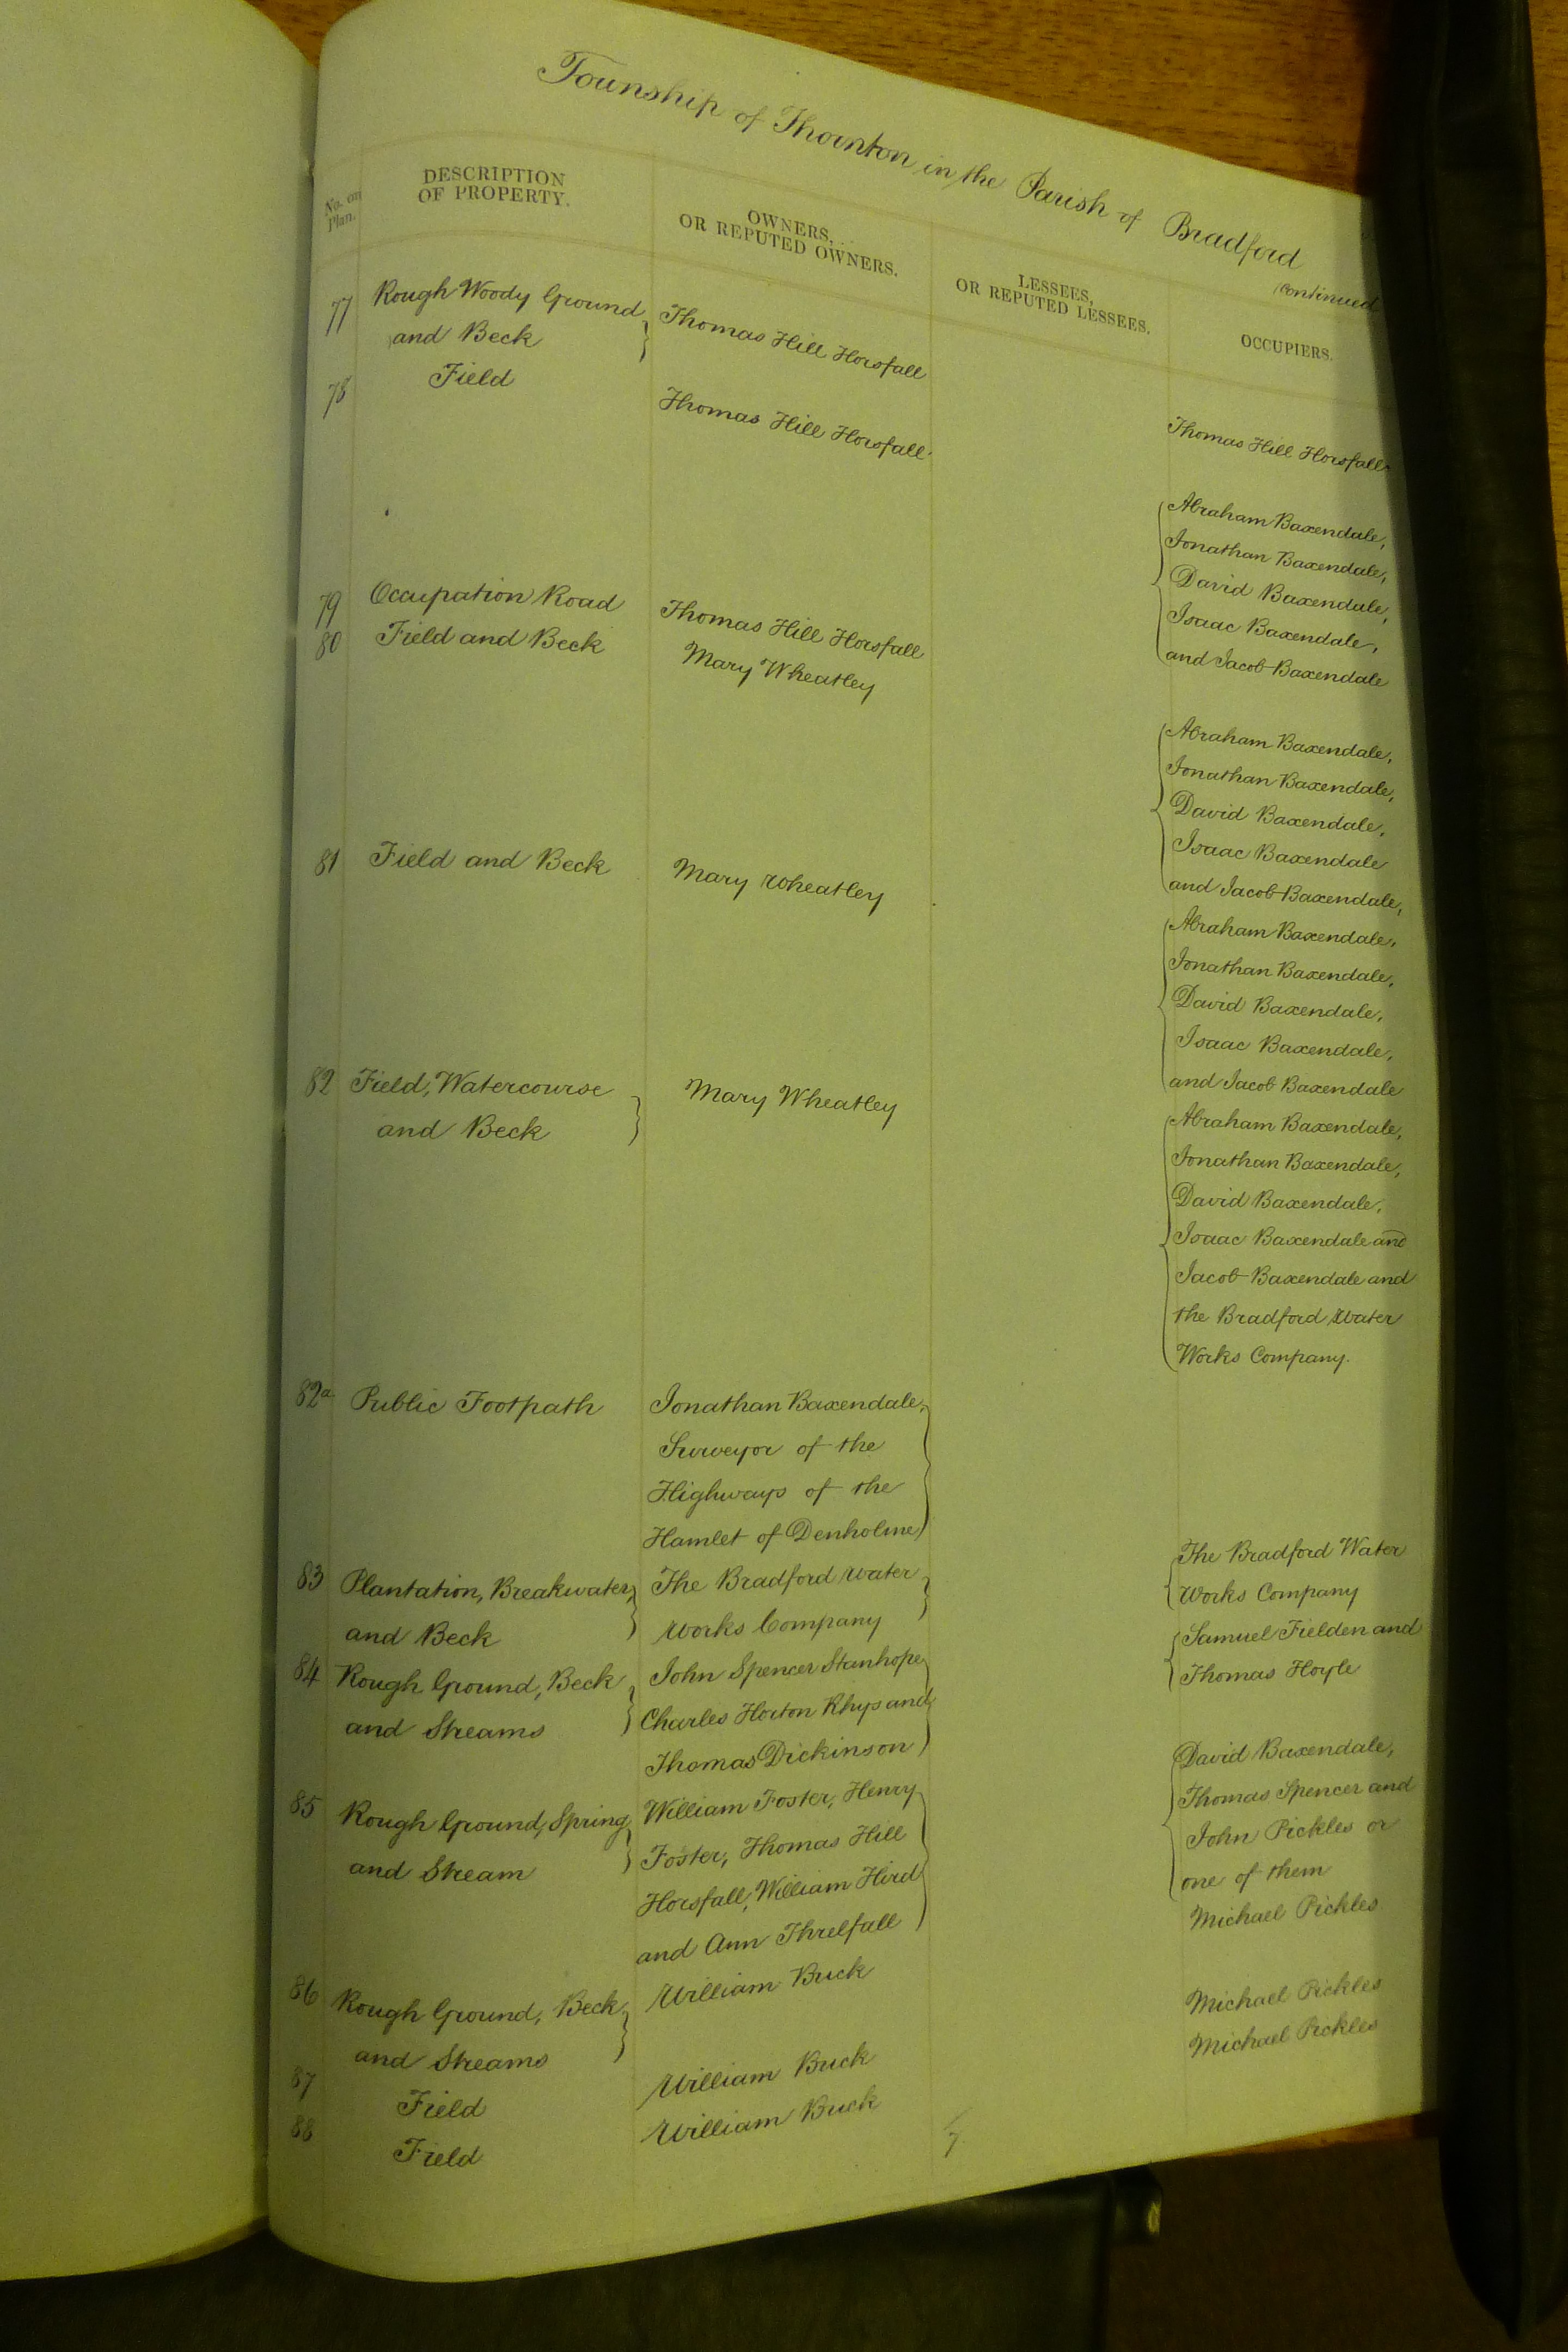 Township of Thornton in the Parish of Bradford
continued
No. on Plan.
DESCRIPTION
OF PROPERTY.
OWNERS,
OR REPUTED OWNERS.
LESSEES,
OR REPUTED LESSEES.
OCCUPIERS.
77 Rough Woody Ground
and Beck } Thomas Hill Horsfall Thomas Hill Horsfall
78 Field Thomas Hill Horsfall
Abraham Baxendale,
Jonathan Baxendale,
David Baxendale,
Isaac Baxendale,
and Jacob Baxendale
79 Occupation Road Thomas Hill Horsfall
80 Field and Beck Mary Wheatley
Abraham Baxendale,
Jonathan Baxendale,
David Baxendale,
Isaac Baxendale
and Jacob Baxendale,
81 Field and Beck Mary Wheatley
Abraham Baxendale,
Jonathan Baxendale,
David Baxendale,
Isaac Baxendale,
and Jacob Baxendale
82 Field, Watercourse
and Beck } Mary Wheatley
Abraham Baxendale,
Jonathan Baxendale,
David Baxendale,
Isaac Baxendale and
Jacob Baxendale and
the Bradford Water
Works Company.
82a Public Footpath
Jonathan Baxendale,
Surveyor of the
Highways of the
Hamlet of Denholme
83 Plantation, Breakwater,
and Beck
The Bradford Water
Works Company
The Bradford Water
Works Company
84 Rough Ground, Beck
and Streams
John Spencer Stanhope
Charles Horton Rhys and
Thomas Dickinson
Samuel Fielden and
Thomas Hoyle
85 Rough Ground, Spring
and Stream
William Foster, Henry
Foster, Thomas Hill
Horsfall, William Hird
and Ann Threlfall
David Baxendale,
Thomas Spencer and
John Pickles or
one of them
86 Rough Ground, Beck
and Streams
William Buck
Michael Pickles
87 Field William Buck Michael Pickles
88 Field William Buck Michael Pickles